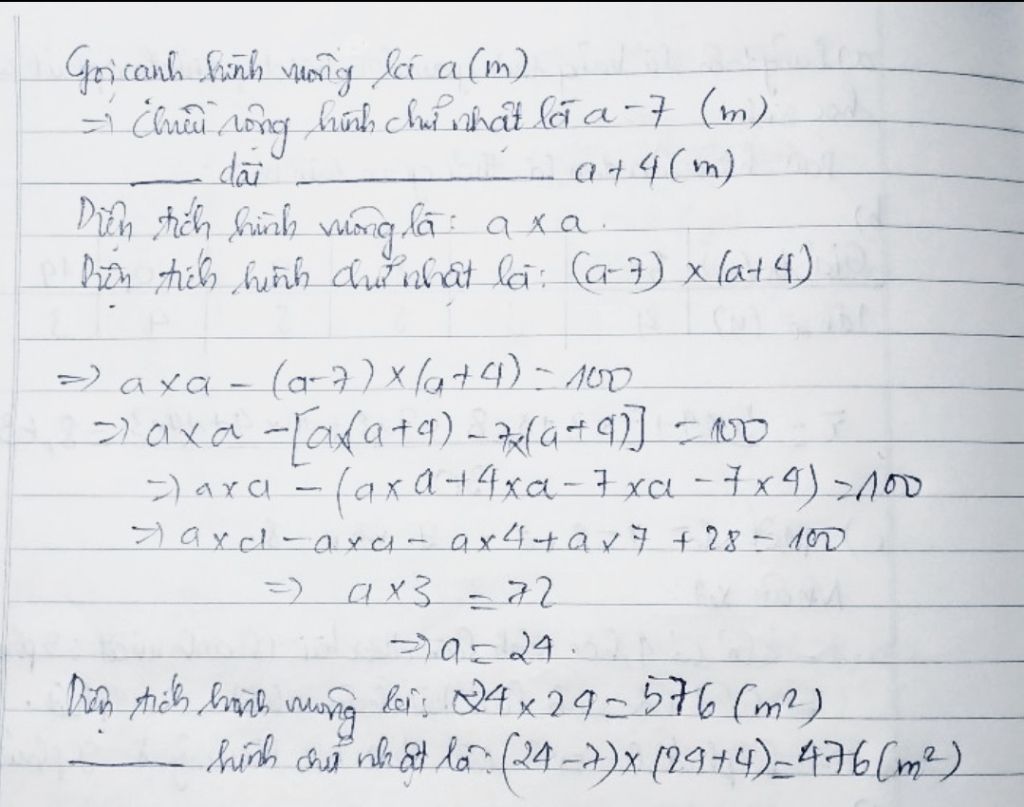 Gọi cạnh hình vuông là a (m)
=> Chiều rộng hình chữ nhật là a - 7 (m)
___ dài ___ a + 4 (m)
Diện tích hình vuông là: a x a.
Diện tích hình chữ nhật là: (a-7) x (a+4)
=> a x a - (a-7) x (a+4) = 100
=> a x a - [a x (a+4) - 7 x (a+4)] = 100
=> a x a - (a x a + 4 x a - 7 x a - 7 x 4) = 100
=> a x a - a x a - a x 4 + a x 7 + 28 = 100
=> a x 3 = 72
=> a = 24.
Diện tích hình vuông là: 24 x 24 = 576 (m²)
___ hình chữ nhật là: (24-7) x (24+4) = 476 (m²)